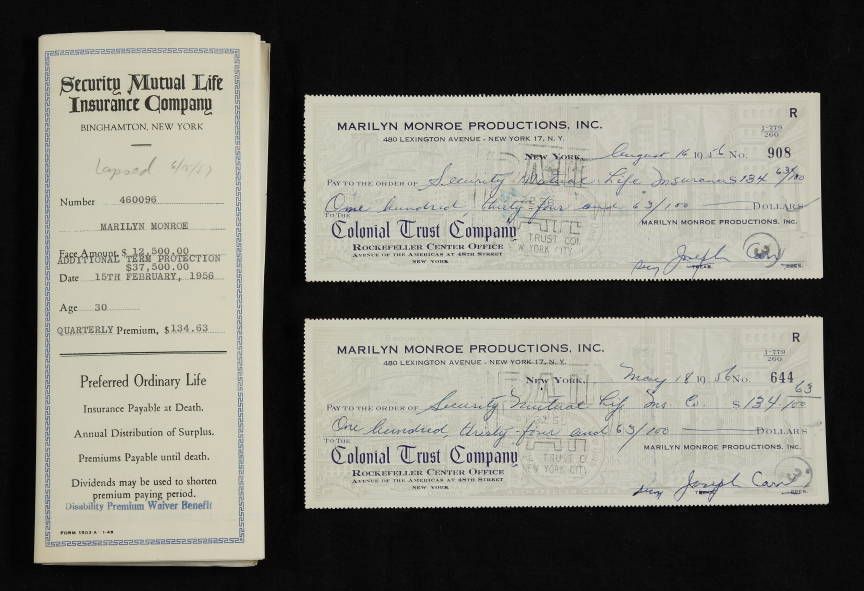 Security Mutual Life
Insurance Company
BINGHAMTON, NEW YORK
Lapsed
Number 460096
MARILYN MONROE
Face Amount, $ 12,500.00
ADDITIONAL TERM PROTECTION
$37,500.00
Date 15TH FEBRUARY, 1956
Age 30
QUARTERLY Premium, $134.63
Preferred Ordinary Life
Insurance Payable at Death.
Annual Distribution of Surplus.
Premiums Payable until death.
Dividends may be used to shorten
premium paying period.
Disability Premium Waiver Benefit
FORM 1503 A 1-48
R
MARILYN MONROE PRODUCTIONS, INC.
480 LEXINGTON AVENUE - NEW YORK 17, N. Y.
1-779
260
NEW YORK, August 16 1956 No. 908
PAY TO THE ORDER OF Security Mutual Life Insurance $134 63/100
One hundred, thirty-four and 63/100 DOLLARS
TO THE
Colonial Trust Company
MARILYN MONROE PRODUCTIONS, INC.
ROCKEFELLER CENTER OFFICE
AVENUE OF THE AMERICAS AT 48TH STREET
NEW YORK
PAID
TRUST CO.
NEW YORK CITY
Joseph Carr
TREAS. PRES.
3
R
MARILYN MONROE PRODUCTIONS, INC.
480 LEXINGTON AVENUE - NEW YORK 17, N. Y.
1-779
260
NEW YORK, May 18 1956 No. 644
PAY TO THE ORDER OF Security Mutual Life Ins. Co. $ 134. 63/100
One hundred, thirty-four and 63/100 DOLLARS
TO THE
Colonial Trust Company
MARILYN MONROE PRODUCTIONS, INC.
ROCKEFELLER CENTER OFFICE
AVENUE OF THE AMERICAS AT 48TH STREET
NEW YORK
PAID
TRUST CO
NEW YORK CITY
Joseph Carr
TREAS. PRES.
3